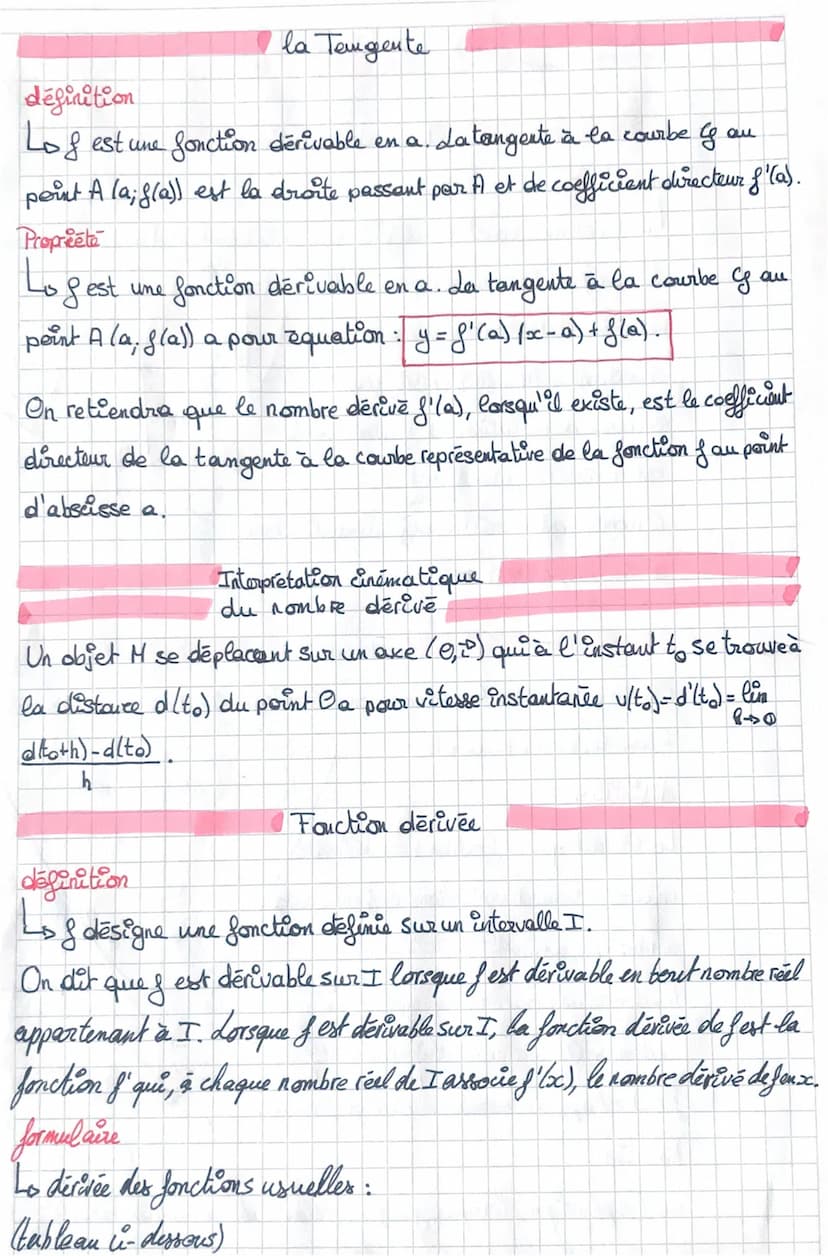 la Tangente
définition
↳ f est une fonction dérivable en a. La tangente à la courbe Cf au
point A (a; f(a)) est la droite passant par A et de coefficient directeur f'(a).
Propriété
↳ f est une fonction dérivable en a. La tangente à la courbe Cf au
point A (a; f(a)) a pour équation : y = f'(a) (x - a) + f(a).
On retiendra que le nombre dérivé f'(a), lorsqu'il existe, est le coefficient
directeur de la tangente à la courbe représentative de la fonction f au point
d'abscisse a.
Interprétation cinématique
du nombre dérivé
Un objet M se déplacent sur un axe (O, i) qui à l'instant t₀ se trouve à
la distance d(t₀) du point O a pour vitesse instantanée v(t₀) = d'(t₀) = lim
h→0
d(t₀+h) - d(t₀)
h .
Fonction dérivée
définition
↳ f désigne une fonction définie sur un intervalle I.
On dit que f est dérivable sur I lorsque f est dérivable en tout nombre réel
appartenant à I. Lorsque f est dérivable sur I, la fonction dérivée de f est la
fonction f' qui, à chaque nombre réel de I associe f'(x), le nombre dérivé de f en x.
formulaire
↳ dérivée des fonctions usuelles :
(tableau ci-dessous)